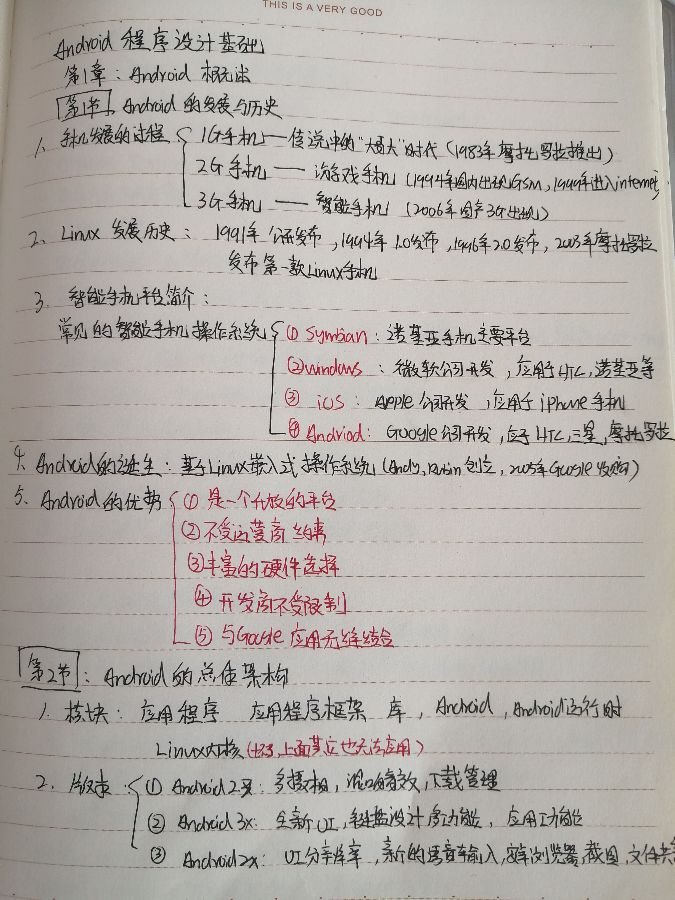 THIS IS A VERY GOOD
Android 程序设计基础
第1章：Android 概述
第1节，Android 的发展与历史
1、手机发展的过程 1G手机——传说中的"大哥大"时代（1983年摩托罗拉推出）
2G手机——游戏手机（1994年国内出现GSM，1999年进入internet）
3G手机——智能手机（2006年国产3G出现）
2、Linux 发展历史：1991年公开发布，1994年1.0发布，1996年2.0发布，2003年摩托罗拉
发布第一款Linux手机
3、智能手机平台简介：
常见的智能手机操作系统 ① Symbian：诺基亚手机主要平台
②windows：微软公司开发，应用于HTC，诺基亚等
③ iOS：Apple公司开发，应用于iphone手机
④ Andriod：Google公司开发，应于HTC，三星，摩托罗拉
4、Android的诞生：基于Linux嵌入式操作系统（Andy，Rubin创立，2005年Google收购）
5、Android的优势 ① 是一个开放的平台
②不受运营商约束
③丰富的硬件选择
④ 开发商不受限制
⑤ 与Google应用无缝结合
第2节：Android的总体架构
1、模块：应用程序 应用程序框架 库，Android，Android运行时
Linux内核（上面其它也无法应用）
2、版本 ① Android 2.x：多摄相，混响音效，下载管理
② Android 3x：全新UI，键盘设计，功能，应用功能
③ Android2x：UI分辨率，新的语音输入，浏览器，截图，文件共